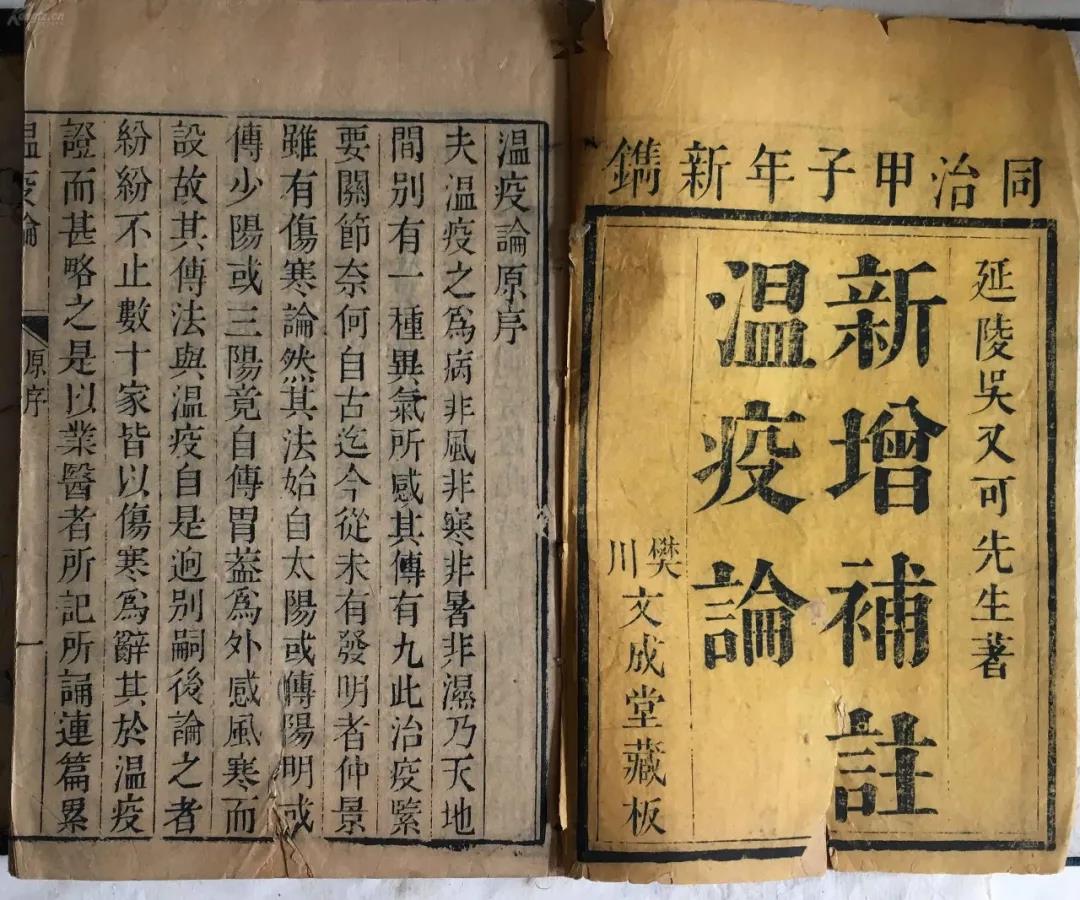 同治甲子年新鐫
延陵吳又可先生著
新增補註
温疫論
樊川文成堂藏板
温疫論原序
夫温疫之爲病非風非寒非暑非濕乃天地
間別有一種異氣所感其傳有九此治疫緊
要關節奈何自古迄今從未有發明者仲景
雖有傷寒論然其法始自太陽或傳陽明或
傳少陽或三陽竟自傳胃葢爲外感風寒而
設故其傳法與温疫自是逈別嗣後論之者
紛紛不止數十家皆以傷寒爲辭其於温疫
證而甚略之是以業醫者所記所誦連篇累
温疫論
原序
一